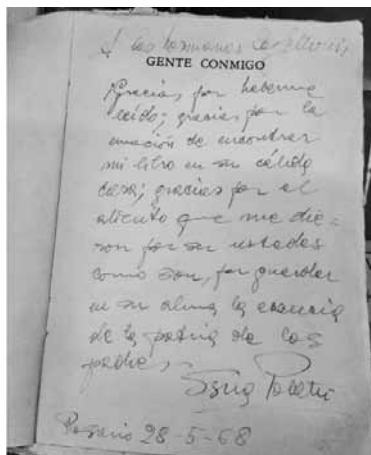 A los hermanos
GENTE CONMIGO
Gracias, por haberme
leído; gracias por la
emoción de encontrar
mi libro en su cálida
casa; gracias por el
aliento que me die-
ron por ser ustedes
como son, por guardar
en su alma la esencia
de la patria de los
padres,
Syria Poletti
Rosario 28-5-68